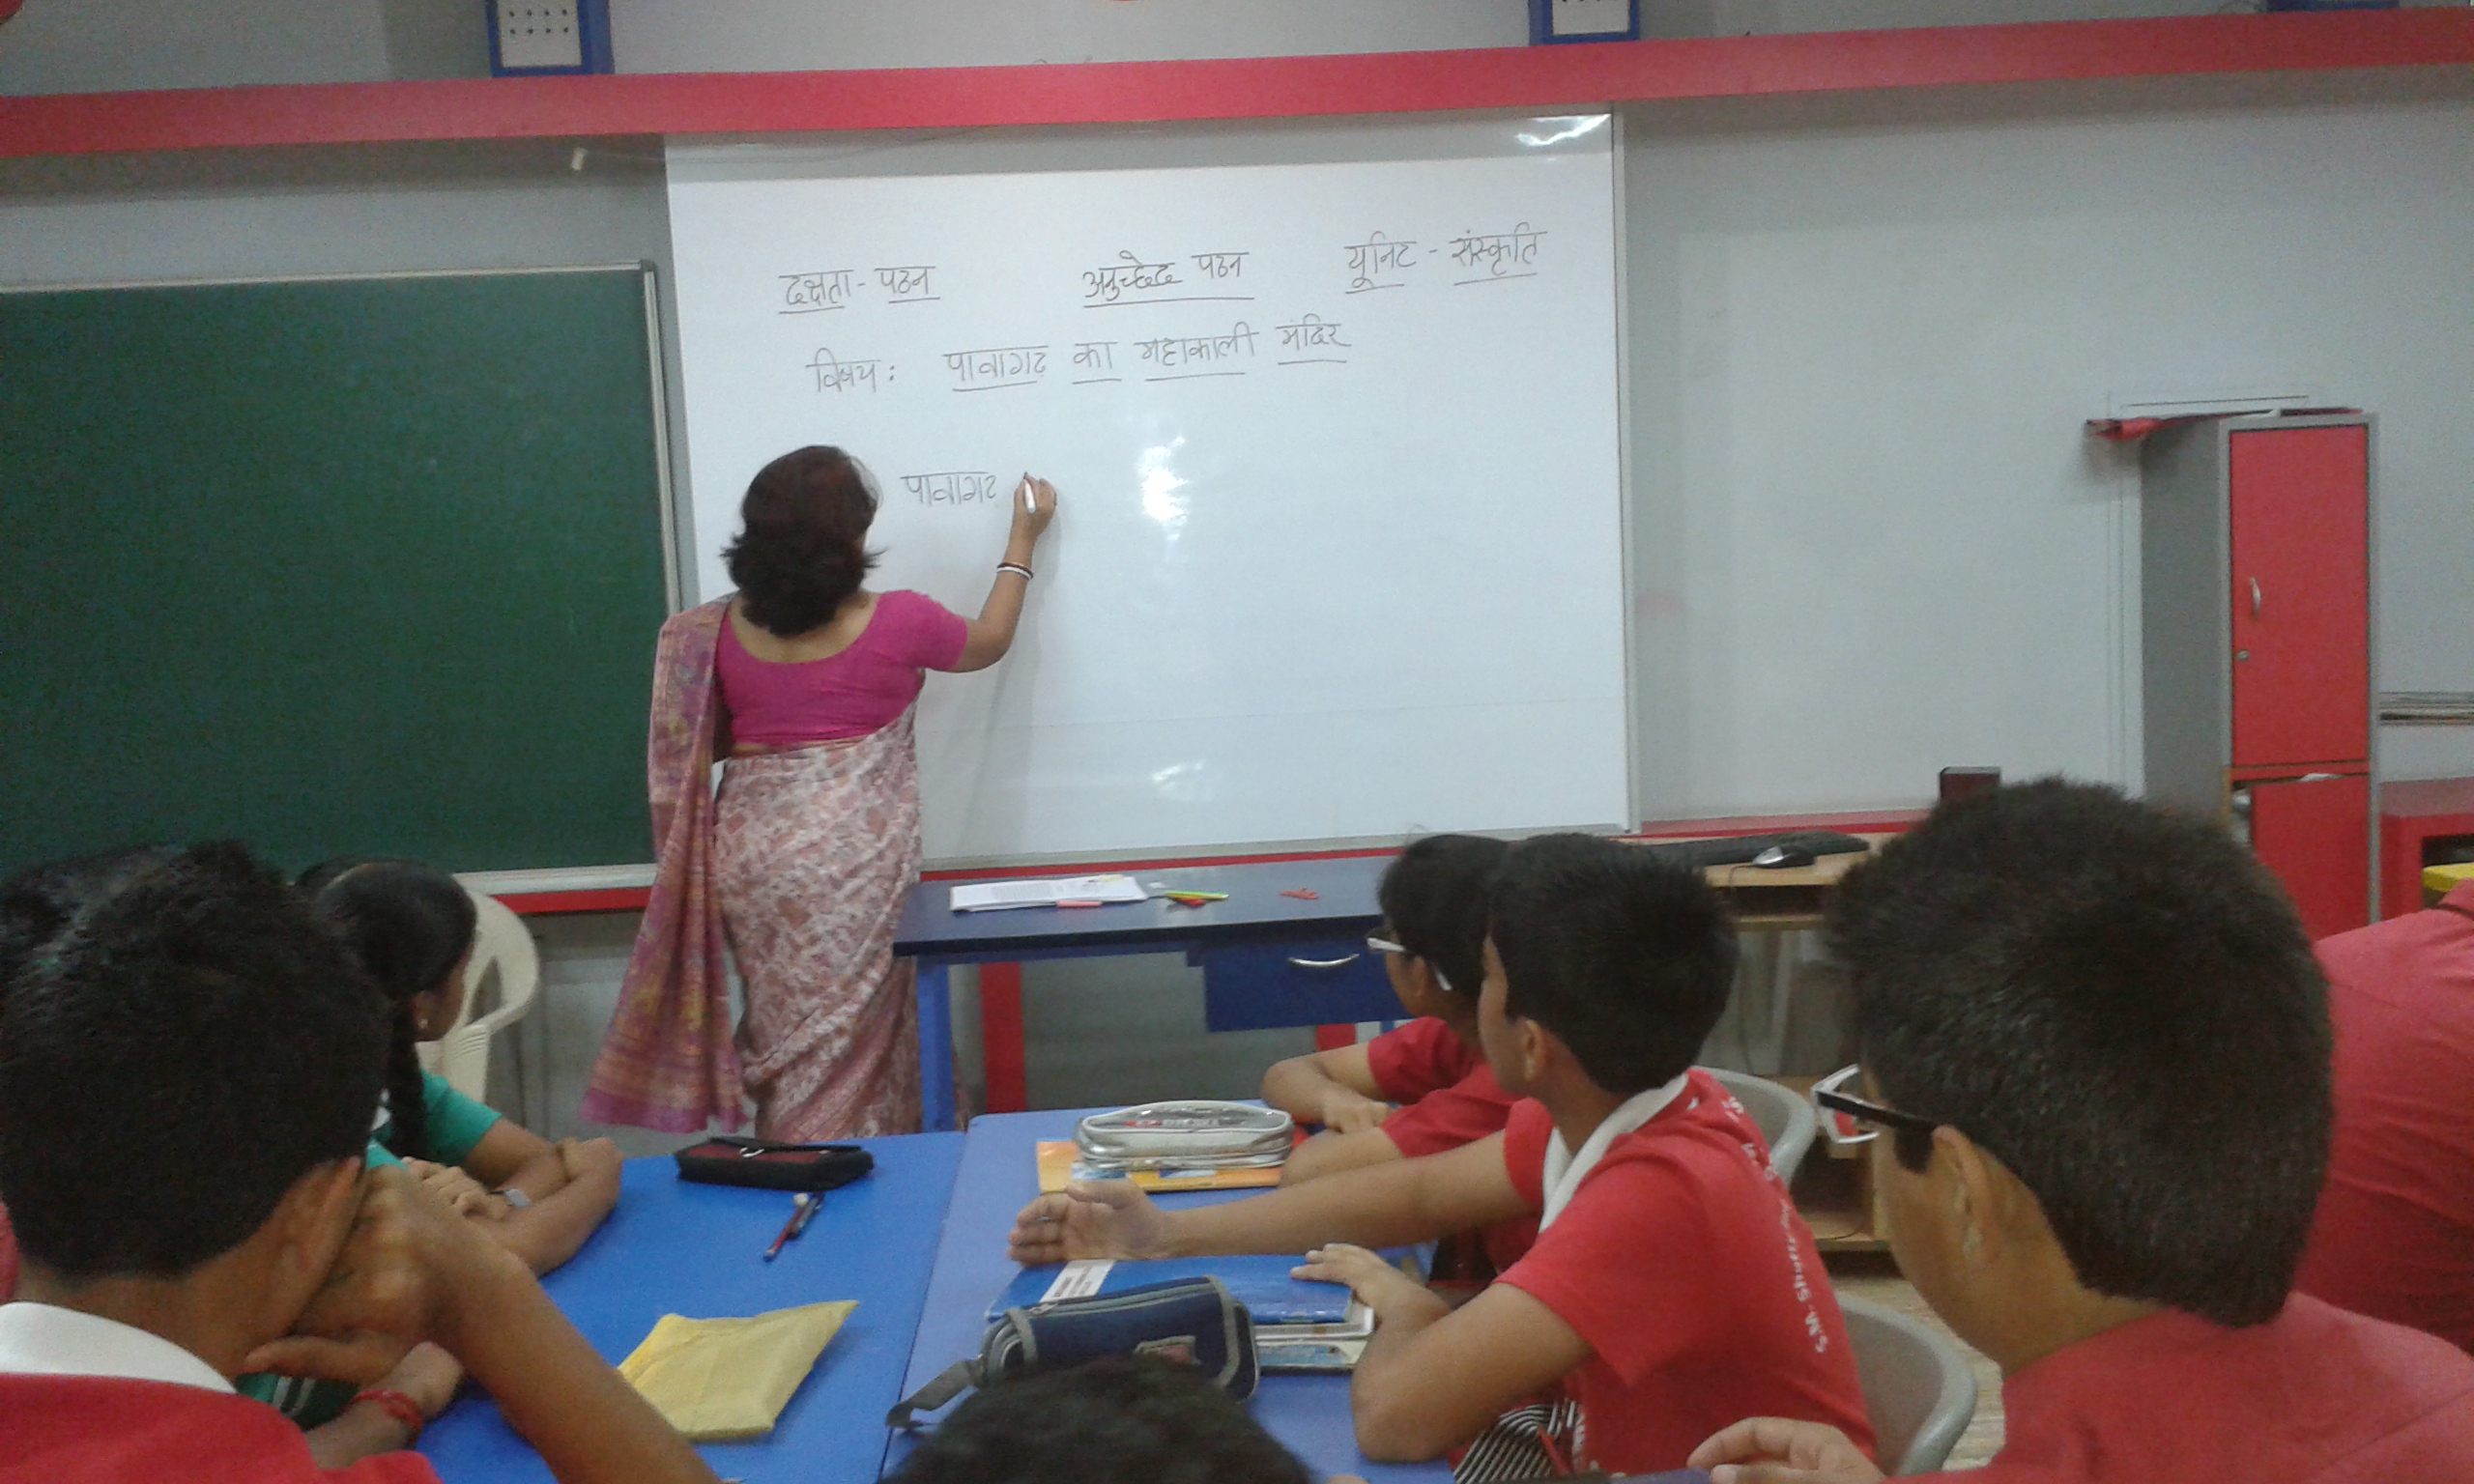 दक्षता - पठन अनुच्छेद पठन यूनिट - संस्कृति
विषय : पावागढ का महाकाली मंदिर
पावागढ